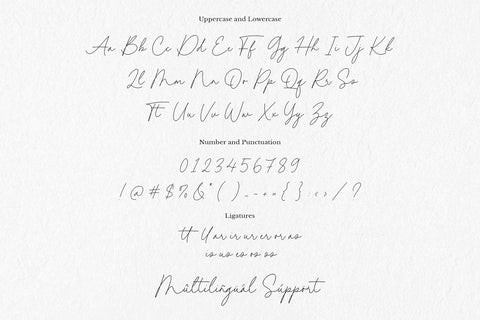 Uppercase and Lowercase
Aa Bb Cc Dd Ee Ff Gg Hh Ii Jj Kk
Ll Mm Nn Oo Pp Qq Rr Ss
Tt Uu Vv Ww Xx Yy Zz
Number and Punctuation
0123456789
! @ # $ % & * ( ) _ - + = { } : < > / ?
Ligatures
tt ll ar ir ur er or as
is us es os ss
Múltilingúal Súpport